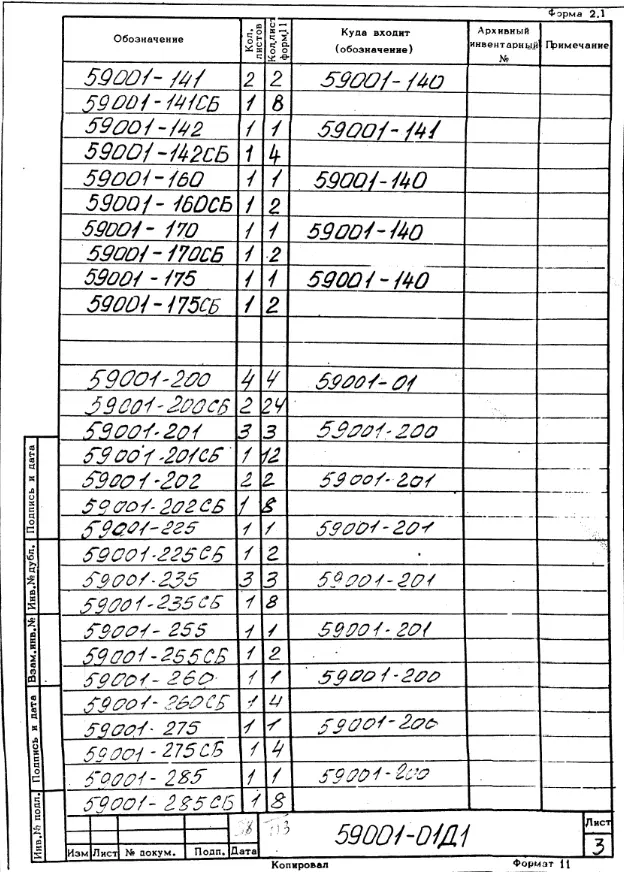 Форма 2.1
Обозначение Кол. листов Кол.лист форм.11 Куда входит (обозначение) Архивный инвентарный № Примечание
59001-141 2 2 59001-140
59001-141СБ 1 8
59001-142 1 1 59001-141
59001-142СБ 1 4
59001-160 1 1 59001-140
59001-160СБ 1 2
59001-170 1 1 59001-140
59001-170СБ 1 2
59001-175 1 1 59001-140
59001-175СБ 1 2
59001-200 4 4 59001-01
59001-200СБ 2 24
59001-201 3 3 59001-200
59001-201СБ 1 12
59001-202 2 2 59001-201
59001-202СБ 1 8
59001-225 1 1 59001-201
59001-225СБ 1 2
59001-235 3 3 59001-201
59001-235СБ 1 8
59001-255 1 1 59001-201
59001-255СБ 1 2
59001-260 1 1 59001-200
59001-260СБ 1 4
59001-275 1 1 59001-200
59001-275СБ 1 4
59001-285 1 1 59001-200
59001-285СБ 1 8
Подпись и дата
Инв.№дубл.
Взам.инв.№
Подпись и дата
Инв.№ подл.
59001-01Д1
Лист
3
Изм Лист № докум. Подп. Дата
Копировал Формат 11